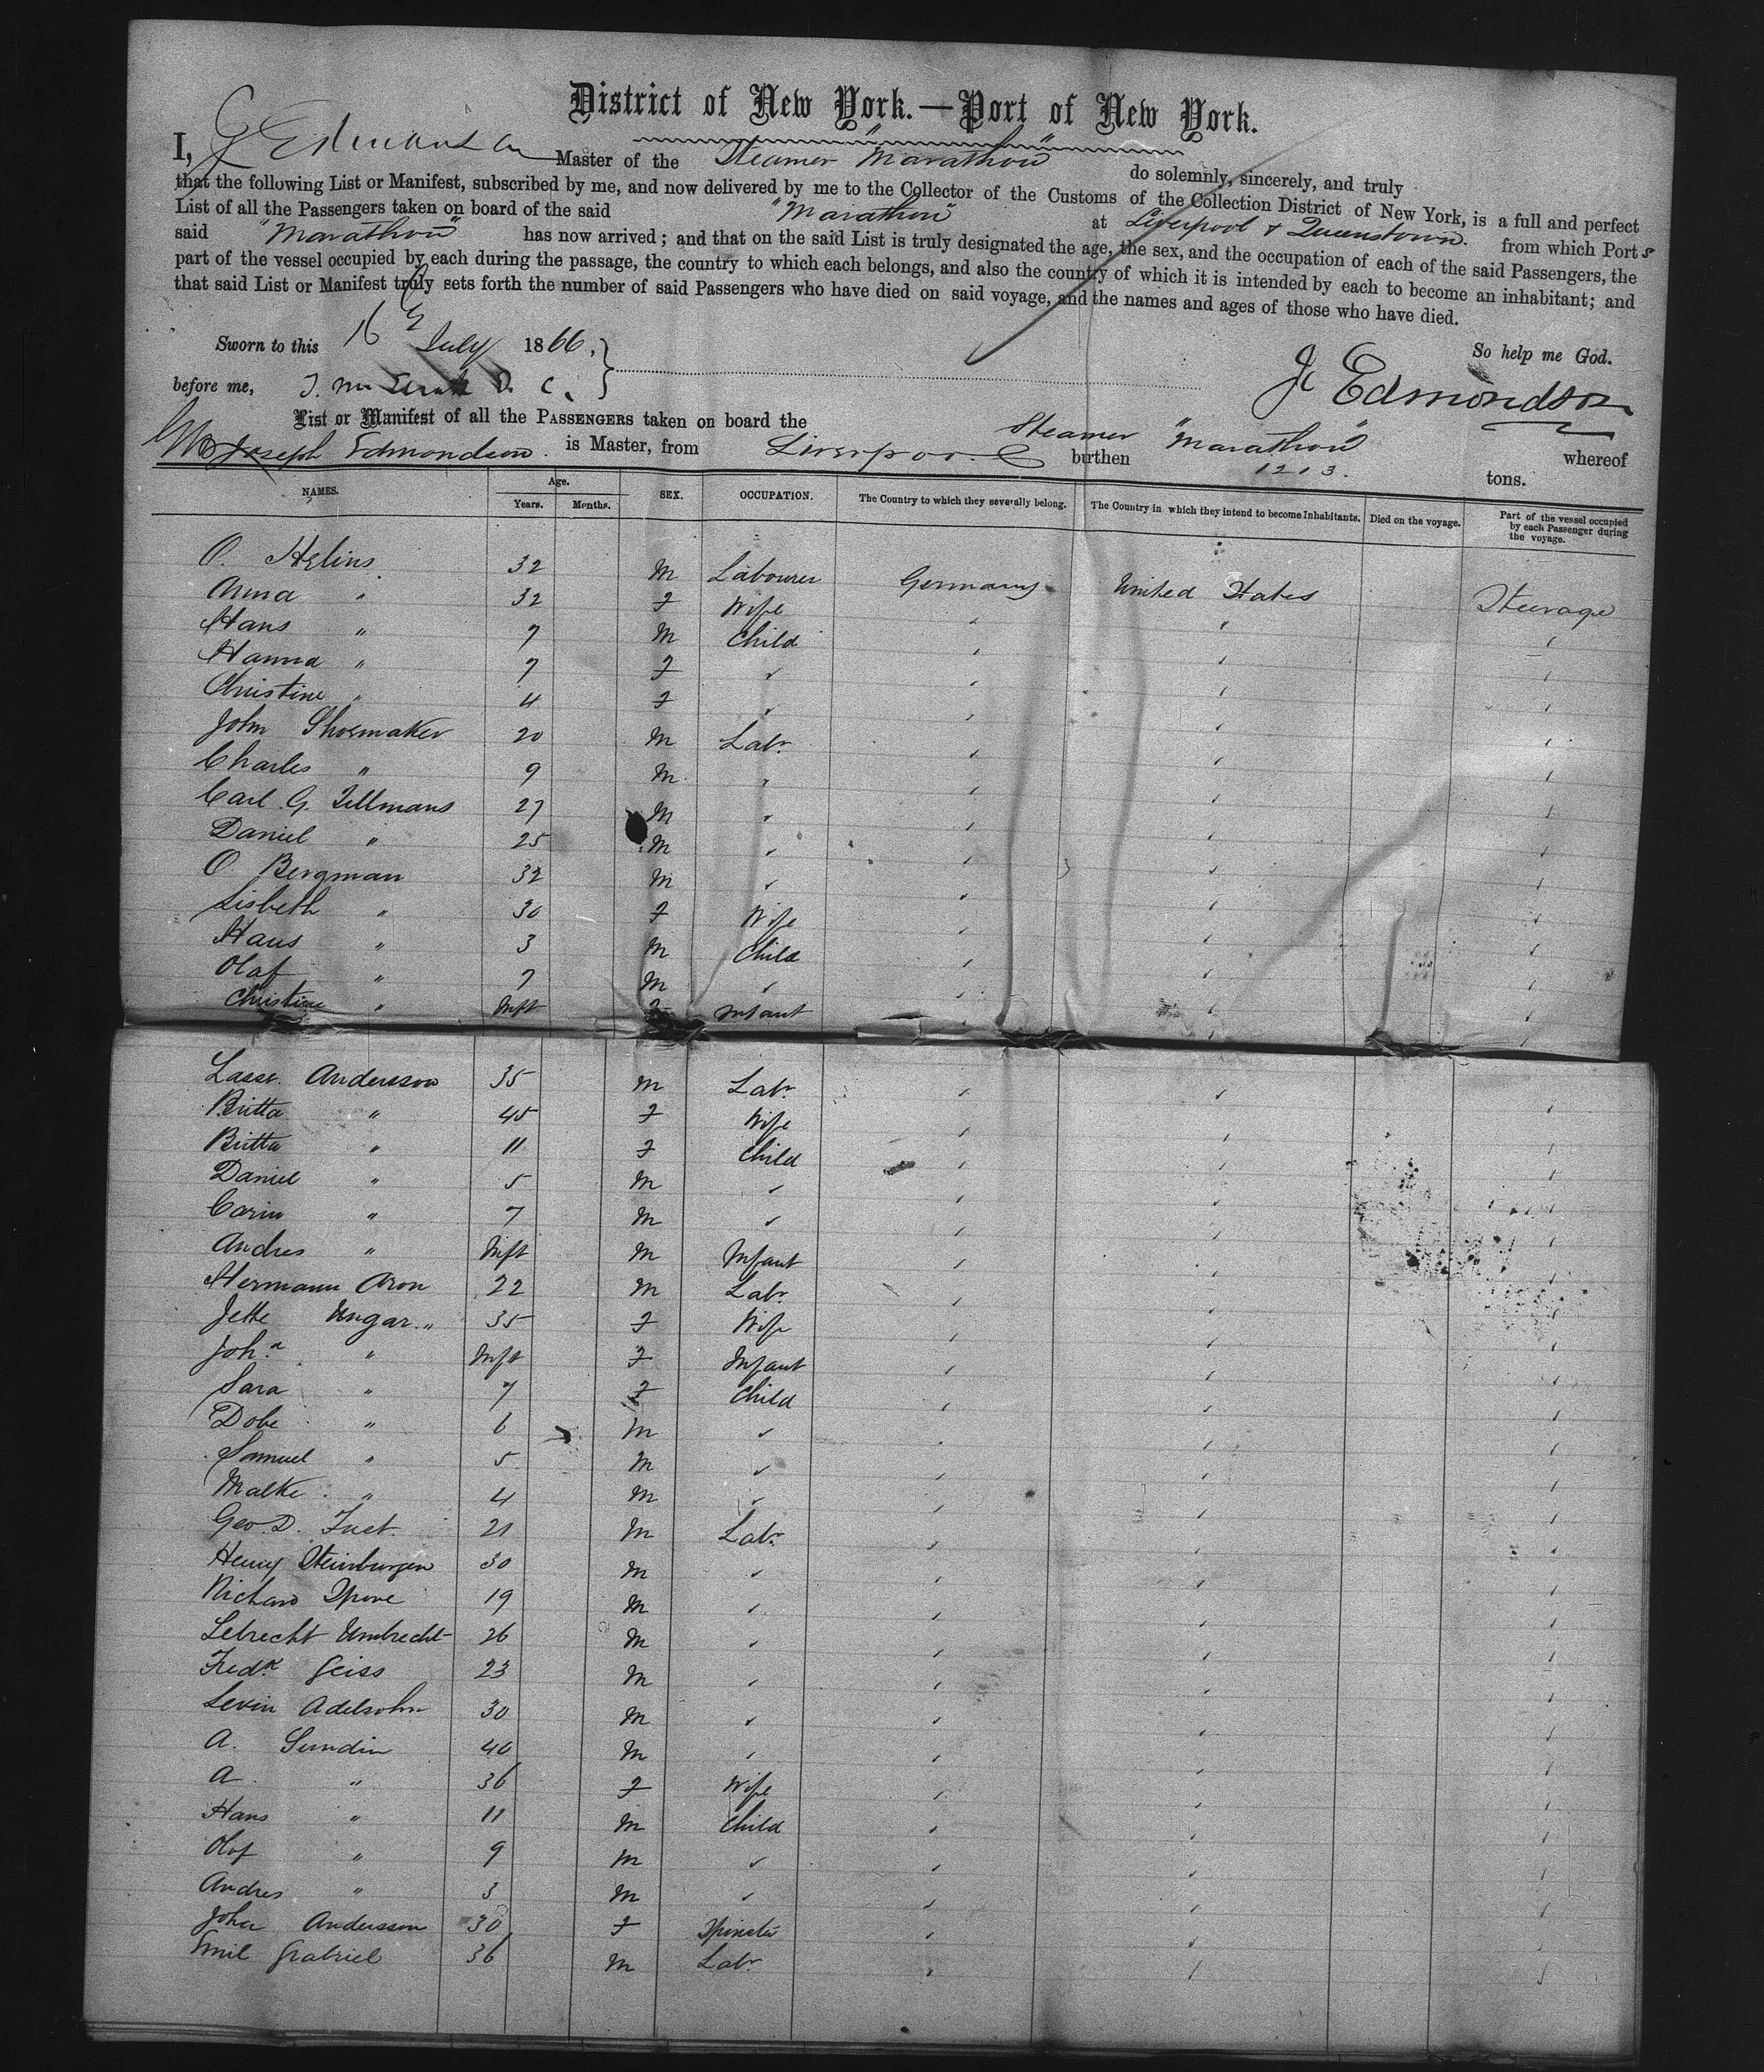 District of New York.—Port of New York.
I, J Edmondson Master of the Steamer "Marathon" do solemnly, sincerely, and truly
that the following List or Manifest, subscribed by me, and now delivered by me to the Collector of the Customs of the Collection District of New York, is a full and perfect
List of all the Passengers taken on board of the said "Marathon" at Liverpool & Queenstown. from which Ports
said "Marathon" has now arrived; and that on the said List is truly designated the age, the sex, and the occupation of each of the said Passengers, the
part of the vessel occupied by each during the passage, the country to which each belongs, and also the country of which it is intended by each to become an inhabitant; and
that said List or Manifest truly sets forth the number of said Passengers who have died on said voyage, and the names and ages of those who have died.
So help me God.
Sworn to this 16 July 1866.
J Edmondson
before me, D. C.
List or Manifest of all the PASSENGERS taken on board the Steamer "Marathon" whereof
Joseph Edmondson is Master, from Liverpool burthen 1213. tons.
NAMES. Age. Years. Months. SEX. OCCUPATION. The Country to which they severally belong. The Country in which they intend to become Inhabitants. Died on the voyage. Part of the vessel occupied by each Passenger during the voyage.
O. Helins 32 M Labourer Germany United States Steerage
Anna " 32 F Wife
Hans " 7 M Child
Hanna " 7 F
Christine " 4 F
John Shoemaker 20 M Labr
Charles " 9 M
Carl G. Tillmans 27 M
Daniel " 25 M
O Bergman 32 M
Lisbeth " 30 F Wife
Hans " 3 M Child
Olaf " 7 M
Christine " Inft F Infant
Lasse Andersson 35 M Labr
Britta " 45 F Wife
Britta " 11 F Child
Daniel " 5 M
Carin " 7 M
Andres " Inft M Infant
Hermann Aron 22 M Labr
Jette Ungar " 35 F Wife
Joha " Inft F Infant
Sara " 7 F Child
Dobe " 6 M
Samuel " 5 M
Malke " 4 M
Geo. D. 21 M Labr
Henry Steinburgen 30 M
Richard 19 M
Lebrecht Umbrecht 26 M
Fredk Geiss 23 M
Levin Adelsohn 30 M
A. Sundin 40 M
A " 36 F Wife
Hans " 11 M Child
Olof " 9 M
Andres " 3 M
Joha Andersson 30 F Spinster
Emil Gabriel 36 M Labr